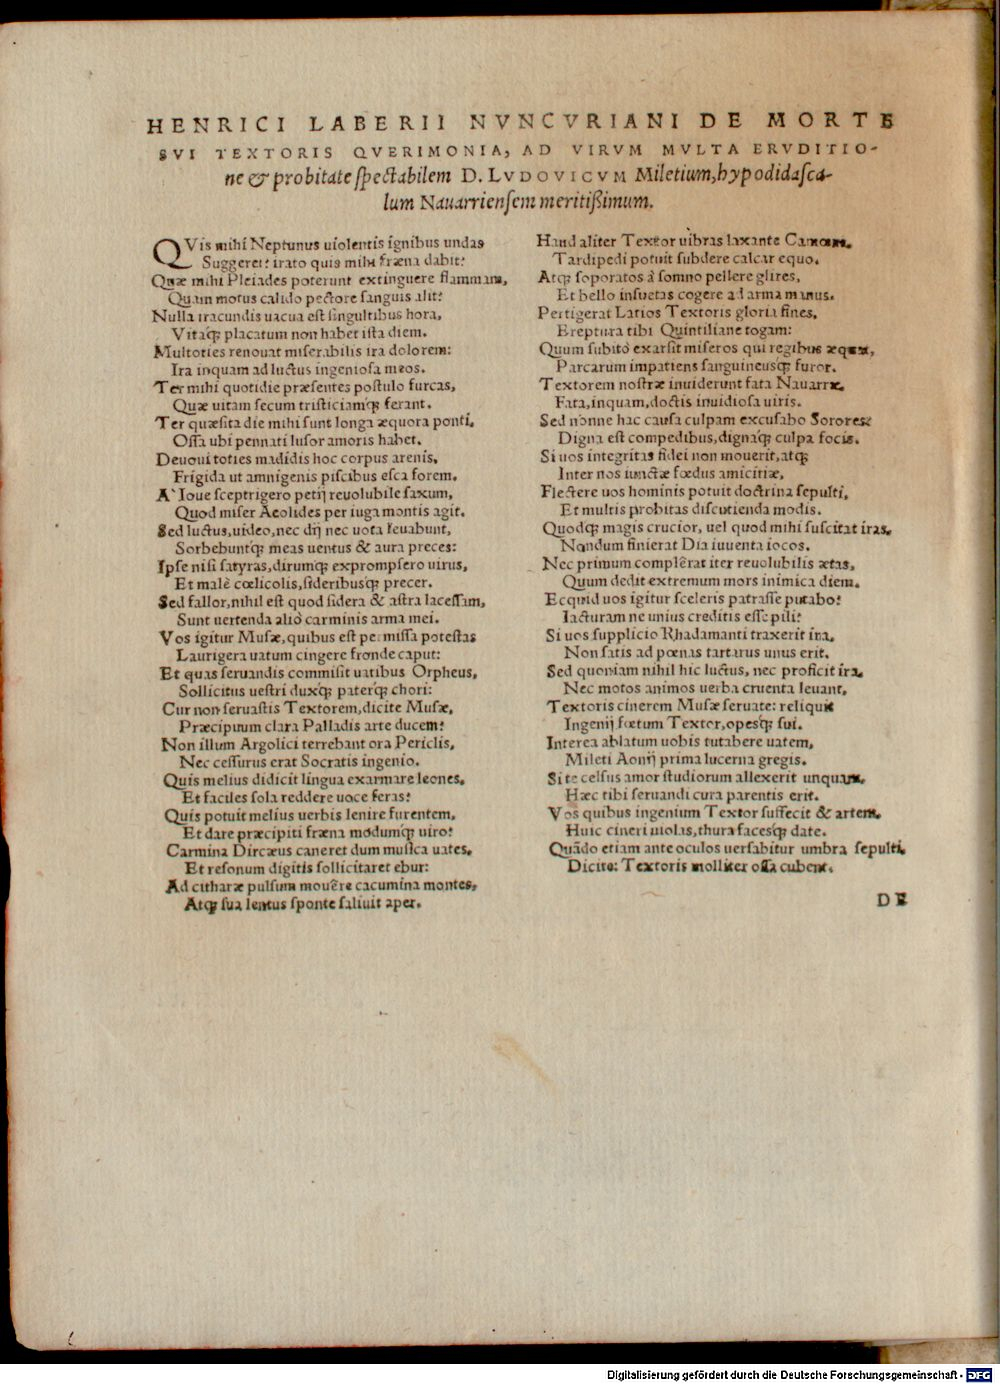 HENRICI LABERII NVNCVRIANI DE MORTE
SVI TEXTORIS QVERIMONIA, AD VIRVM MVLTA ERVDITIO-
ne & probitate spectabilem D. LVDOVICVM Miletium, hypodidasca-
lum Nauarriensem meritißimum.
QVis mihi Neptunus uiolentis ignibus undas
Suggeret? irato quis mihi fræna dabit?
Quæ mihi Pleiades poterunt extinguere flammam,
Quam motus calido pectore sanguis alit?
Nulla iracundis uacua est singultibus hora,
Vitaq́; placatum non habet ista diem.
Multoties renouat miserabilis ira dolorem:
Ira inquam ad luctus ingeniosa meos.
Ter mihi quotidie præsentes postulo furcas,
Quæ uitam secum tristiciamq́; ferant.
Ter quæsita die mihi sunt longa æquora ponti,
Ossa ubi pennati lusor amoris habet.
Deuoui toties madidis hoc corpus arenis,
Frigida ut amnigenis piscibus esca forem.
A' Ioue sceptrigero petij reuolubile saxum,
Quod miser Aeolides per iuga montis agit.
Sed luctus, uideo, nec dij nec uota leuabunt,
Sorbebuntq́; meas uentus & aura preces:
Ipse nisi satyras, dirumq́; exprompsero uirus,
Et malè cœlicolis, sideribusq́; precer.
Sed fallor, nihil est quod sidera & astra lacessam,
Sunt uertenda aliò carminis arma mei.
Vos igitur Musæ, quibus est permissa potestas
Laurigera uatum cingere fronde caput:
Et quas seruandis commisit uatibus Orpheus,
Sollicitus uestri duxq́; paterq́; chori:
Cur non seruastis Textorem, dicite Musæ,
Præcipuum clara Palladis arte ducem?
Non illum Argolici terrebant ora Periclis,
Nec cessurus erat Socratis ingenio.
Quis melius didicit lingua exarmare leones,
Et faciles sola reddere uoce feras?
Quis potuit melius uerbis lenire furentem,
Et dare præcipiti fræna modumq́; uiro?
Carmina Dircæus caneret dum musica uates,
Et resonum digitis sollicitaret ebur:
Ad citharæ pulsum mouêre cacumina montes,
Atq́; sua lentus sponte saliuit aper.
Haud aliter Textor uibras laxante Camœna,
Tardipedi potuit subdere calcar equo.
Atq́; soporatos à somno pellere glires,
Et bello insuetas cogere ad arma manus.
Pertigerat Latios Textoris gloria fines,
Ereptura tibi Quintiliane togam:
Quum subitò exarsit miseros qui regibus æquat,
Parcarum impatiens sanguineusq́; furor.
Textorem nostræ inuiderunt fata Nauarræ,
Fata, inquam, doctis inuidiosa uiris.
Sed nonne hac causa culpam excusabo Sorores?
Digna est compedibus, dignaq́; culpa focis.
Si uos integritas fidei non mouerit, atq́;
Inter nos iunctæ fœdus amicitiæ,
Flectere uos hominis potuit doctrina sepulti,
Et multis probitas discutienda modis.
Quodq́; magis crucior, uel quod mihi suscitat iras,
Nondum finierat Dia iuuenta iocos.
Nec primum complêrat iter reuolubilis ætas,
Quum dedit extremum mors inimica diem.
Ecquid uos igitur sceleris patrasse putabo?
Iacturam ne unius creditis esse pili?
Si uos supplicio Rhadamanti traxerit ira,
Non satis ad pœnas tartarus unus erit.
Sed quoniam nihil hic luctus, nec proficit ira,
Nec motos animos uerba cruenta leuant,
Textoris cinerem Musæ seruate: reliquit
Ingenij fœtum Textor, opesq́; sui.
Interea ablatum uobis tutabere uatem,
Mileti Aonij prima lucerna gregis.
Si te celsus amor studiorum allexerit unquam,
Hæc tibi seruandi cura parentis erit.
Vos quibus ingenium Textor suffecit & artem,
Huic cineri uiolas, thura facesq́; date.
Quãdo etiam ante oculos uersabitur umbra sepulti,
Dicite: Textoris molliter ossa cubent.
DE
Digitalisierung gefördert durch die Deutsche Forschungsgemeinschaft - DFG